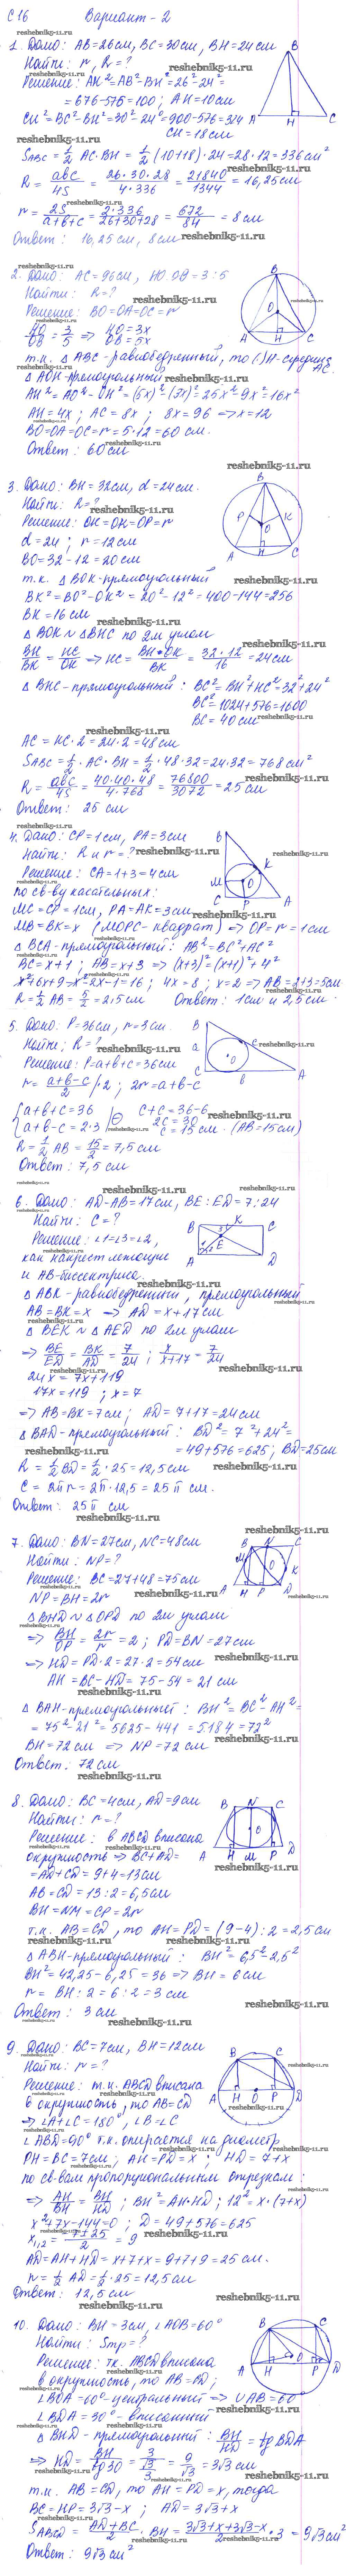 С16 Вариант - 2
1. Дано: AB=26см, BC=30см, BH=24см
Найти: r, R=?
Решение: AH²=AB²-BH²=26²-24²=
=676-576=100; AH=10см
CH²=BC²-BH²=30²-24²=900-576=324
CH=18см
S_ABC=1/2 AC·BH=1/2(10+18)·24=28·12=336см²
R=abc/4S=26·30·28/4·336=21840/1344=16,25см
r=2S/a+b+c=2·336/26+30+28=672/84=8см
Ответ: 16,25см, 8см
2. Дано: AC=96см, HO:OB=3:5
Найти: R=?
Решение: BO=OA=OC=r
HO/OB=3/5 => HO=3x OB=5x
т.к. △ABC-равнобедренный, то (·)H-середина AC.
△AOH-прямоугольный
AH²=AO²-OH²=(5x)²-(3x)²=25x²-9x²=16x²
AH=4x; AC=8x; 8x=96 => x=12
BO=OA=OC=r=5·12=60см.
Ответ: 60см
3. Дано: BH=32см, d=24см.
Найти: R=?
Решение: OH=OK=OP=r
d=24; r=12см
BO=32-12=20см
т.к. △BOK-прямоугольный
BK²=BO²-OK²=20²-12²=400-144=256
BK=16см
△BOK∾△BHC по 2м углам
BH/BK=HC/OK => HC=BH·OK/BK=32·12/16=24см
△BHC-прямоугольный: BC²=BH²+HC²=32²+24²
BC²=1024+576=1600
BC=40см
AC=HC·2=24·2=48см
S_ABC=1/2·AC·BH=1/2·48·32=24·32=768см²
R=abc/4S=40·40·48/4·768=76800/3072=25см
Ответ: 25см
4. Дано: CP=1см, PA=3см
Найти: R и r=?
Решение: CA=1+3=4см
по св-ву касательных:
MC=CP=1см, PA=AK=3см
MB=BK=x (MOPC-квадрат) => OP=r=1см
△BCA-прямоугольный: AB²=BC²+AC²
BC=x+1; AB=x+3 => (x+3)²=(x+1)²+4²
x²+6x+9-x²-2x-1=16; 4x=8; x=2 => AB=2+3=5см
R=1/2 AB=5/2=2,5см Ответ: 1см и 2,5см.
5. Дано: P=36см, r=3см.
Найти: R=?
Решение: P=a+b+c=36см
r=a+b-c/2 |·2; 2r=a+b-c
{a+b+c=36 a+b-c=2·3 |⊖ c+c=36-6
2c=30
c=15см. (AB=15см)
R=1/2 AB=15/2=7,5см
Ответ: 7,5см
6. Дано: AD-AB=17см, BE:ED=7:24
Найти: C=?
Решение: ∠1=∠3=∠2,
как накрест лежащие
и AB-биссектриса.
△ABK-равнобедренный, прямоугольный
AB=BK=x => AD=x+17см
△BEK∾△AED по 2м углам
=> BE/ED=BK/AD=7/24; x/x+17=7/24
24x=7x+119
17x=119; x=7
=> AB=BK=7см; AD=7+17=24см
△BAD-прямоугольный: BD²=7²+24²=
=49+576=625; BD=25см
R=1/2 BD=1/2·25=12,5см
C=2πr=2π·12,5=25π см.
Ответ: 25π см
7. Дано: BN=27см, NC=48см
Найти: NP=?
Решение: BC=27+48=75см
NP=BH=2r
△BHD∾△OPD по 2м углам
=> BH/OP=2r/r=2; PD=BN=27см
=> HD=PD·2=27·2=54см
AH=BC-HD=75-54=21см
△BAH-прямоугольный: BH²=BC²-AH²=
=75²-21²=5625-441=5184=72²
BH=72см => NP=72см
Ответ: 72см
8. Дано: BC=4см, AD=9см
Найти: r=?
Решение: в ABCD вписана
окружность => BC+AD=
=AD+CD=9+4=13см
AB=CD=13:2=6,5см
BH=NM=CP=2r
т.к. AB=CD, то AH=PD=(9-4):2=2,5см
△ABH-прямоугольный: BH²=6,5²-2,5²
BH²=42,25-6,25=36 => BH=6см
r=BH:2=6:2=3см
Ответ: 3см
9. Дано: BC=7см, BH=12см
Найти: r=?
Решение: т.к. ABCD вписана
в окружность, то AB=CD
=> ∠A+∠C=180°, ∠B=∠C
∠ABD=90° т.к. опирается на диаметр
PH=BC=7см; AH=PD=x; HD=7+x
по св-вам пропорциональным отрезкам:
=> AH/BH=BH/HD; BH²=AH·HD; 12²=x·(7+x)
x²+7x-144=0; D=49+576=625
x1,2=-7±25/2=9
AD=AH+HD=x+7+x=9+7+9=25см.
r=1/2 AD=1/2·25=12,5см
Ответ: 12,5см
10. Дано: BH=3см, ∠AOB=60°
Найти: Sтр=?
Решение: т.к. ABCD вписана
в окружность, то AB=CD;
∠BOA=60°-центральный => ∪AB=60°
∠BDA=30°-вписанный
△BHD-прямоугольный: BH/HD=tg BDA
=> HD=BH/tg30=3/√3/3=9/√3=3√3см
т.к. AB=CD, то AH=PD=x, тогда
BC=HP=3√3-x; AD=3√3+x
S_ABCD=AD+BC/2·BH=3√3+x+3√3-x/2·3=9√3см²
Ответ: 9√3см²